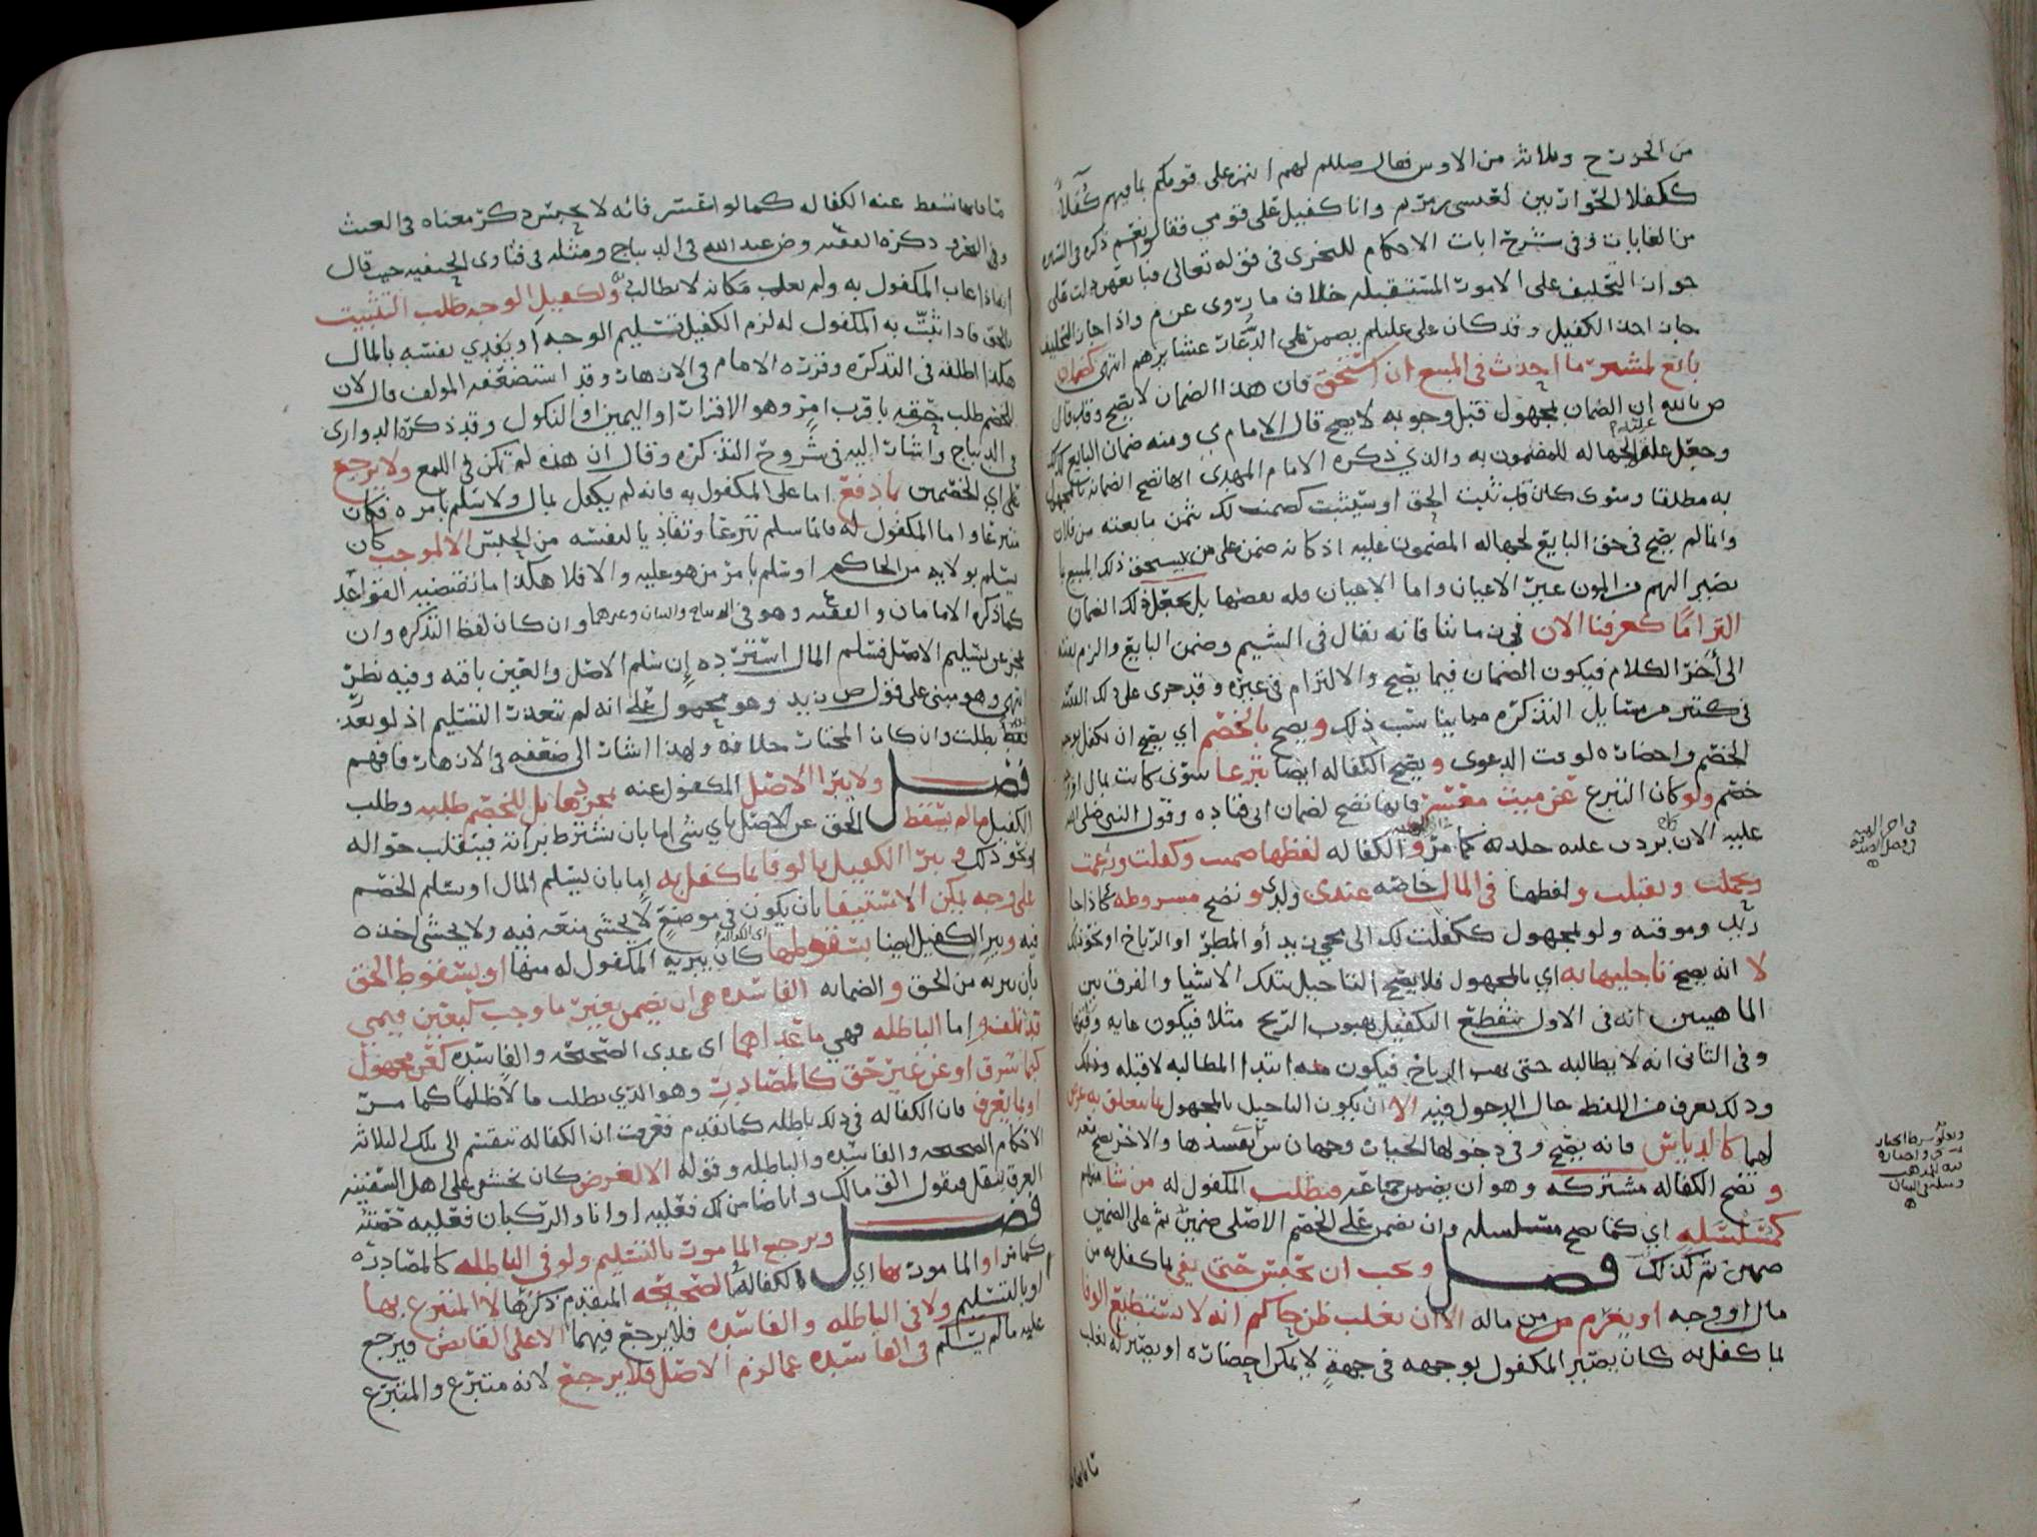 من الخزرج وثلاثة من الاوس فقال صللم لهم انتم على قومكم بما فيهم كفلا
ككفلا الحواريين لعيسى بن مريم وانا كفيل على قومي فقالوا نعم ذكره في
من الغايات وفي شرح ايات الاحكام للنجري في قوله تعالى
جواز التحليف على الامور المستقبله خلاف ما روى عن م واذا جاز التحليف
جاز اخذ الكفيل وقد كان على عليلم يضمن اهل الدعارات عشايرهم انتهى كضمان
بائع لمشتر ما احدث في المبيع ان استحق فان هذا الضمان لا يصح وقد قال
ص بالله ان الضمان بمجهول قبل وجوبه لا يصح قال الامام ي ومنه ضمان البايع
وجعل علة الجهاله للمضمون به والذي ذكره الامام المهدي انها تصح الضمانه بالمجهول
به مطلقا وسوى كان قد ثبت الحق او سيثبت كضمنت لك ثمن ما بعته من فلان
وانما لم يصح في حق البايع لجهاله المضمون عليه اذ كانه ضمن على من يستحق ذلك المبيع
الاعيان واما الاعيان فله بعضها بل يجعل ذلك الضمان
التزاما كعرفنا الان في زماننا فانه يقال في الشيم وضمن البايع والزم نفسه
الى أخر الكلام فيكون الضمان فيما يصح والالتزام في غيره وقد جرى على ذلك
في كثير من مسايل التذكره مما يناسب ذلك ويصح بالخصم اي يصح ان يكفل بوجه
الخصم واحضاره لوقت الدعوى ويصح الكفاله ايضا تبرعا سوى كانت بمال او
خصم ولو كان التبرع عن ميت معسر فانها تصح لضمان ابي قتاده وقول النبي صلى الله
عليه الان بردت عليه جلدته كما مر والكفاله لفظها ضمنت وكفلت وزعمت
وتحملت وتقبلت ولفظها في المال خاصه عندي ولدي وتصح مشروطه كاذا جا
زيد وموقته ولو لمجهول ككفلت لك الى مجي زيد أو المطر او الرياح او نحو ذلك
لا انه يصح تاجليها به اي بالمجهول فلا يصح التاجيل بتلك الاشيا والفرق بين
الماهيتين انه في الاول تنقطع التكفيل بهبوب الريح مثلا فيكون غايه وقتها
وفي الثاني انه لا يطالبه حتى تهب الرياح فيكون منه ابتدا المطالبه لا قبله
وذلك يعرف من اللفظ حال الدخول فيه الا ان يكون التاجيل بالمجهول بما يتعلق به غرض
كالدياس فانه يصح وفي دخولها الخيارات وجهان س تفسدها والاخر تصح
وتصح الكفاله مشتركه وهو ان يضمن جماعه فيطلب المكفول له من شا منهم
كمتسلسله اي كما تصح متسلسله وان يضمن على الخصم الاصلي ضمين ثم على الضمين
ضمين ثم كذلك فصل ويجب ان تحبس حتى يفي بما كفل به من
مال او وجه او يغرم من ماله الا ان يغلب ظن حاكم انه لا يستطيع الوفا
بما كفل به كان يصير المكفول بوجهه في جهة لا يمكن احضاره او يصير له تغلب
تسقط عنه الكفاله كما لو اعسر فانه لا يحبس ذكر معناه في الغيث
وفي البحر ذكره الفقيه وض عبدالله في الديباج ومثله في فتاوى الحنفيه حيث قال
اذا غاب المكفول به ولم يعلم مكانه لا يطالب ولكفيل الوجه طلب التثبيت
بالحق فاذا ثبت به المكفول له لزم الكفيل تسليم الوجه او يفدي نفسه بالمال
هكذا اطلقه في التذكره وقرره الامام في الازهار وقد استضعفه المولف قال لان
للخصم طلب حقه باقرب امر وهو الاقرار او اليمين او النكول وقد ذكره الدواري
في الديباج واشار اليه في شروح التذكره وقال ان هذه لم تكن في اللمع ولا يرجع
على اي الخصمين بما دفع اما على المكفول به فانه لم يكفل بمال ولا سلم بامره فكان
متبرعا واما المكفول له فانما سلم تبرعا وتفاديا لنفسه من الحبس الا لموجب كان
يسلم بولايه من الحاكم او سلم بامر من هو عليه والا فلا هكذا ما تقتضيه القواعد
كما ذكره الامامان والفقيه وهو في الديباج والبيان وغيرهما وان كان لفظ التذكره وان
عجز عن تسليم الاصل فسلم المال استرده إن سلم الاصل والعين باقيه وفيه نظر
انتهى وهو مبني على قول ص زيد وهو محمول على انه لم يتعذر التسليم اذ لو تعذر
فقد بطلت وان كان المختار خلافه ولهذا اشار الى ضعفه في الازهار فافهم
فصل ولا يبرا الاصل المكفول عنه بمجردها بل للخصم طلبه وطلب
الكفيل ما لم يسقط الحق عن الاصل باي شى اما بان يشترط براته فينقلب حواله
او نحو ذلك ويبرا الكفيل بالوفا بما كفل به إما بان يسلم المال او يسلم الخصم
على وجه يمكن الاستيفا بان يكون في موضع لا يخشى منعه فيه ولا يخشى اخذه
فيه ويبرا الكفيل ايضا بسقوطها اي الكفالة كان يبريه المكفول له منها او بسقوط الحق
بأن يبريه من الحق والضمانه الفاسده هي ان يضمن بغير ما وجب كبعين قيمي
قد تلف واما الباطله فهي ما عداهما اي عدى الصحيحه والفاسده كعن مجهول
كبما سرق او عن غير حق كالمصادرة وهو الذي يطلب مالا ظلما كما مر
او بما يغرق فان الكفاله في ذلك باطله كما تقدم فعرفت ان الكفاله تنقسم الى تلك الثلاثه
الاحكام الصحيحه والفاسده والباطله وقوله الا لغرض كان يخشى على اهل السفينه
الغرق فيقول الق مالك وانا ضامن لك فعليه او انا والركبان فعليه حصته
كما مر فصل ويرجع المامور بالتسليم ولو في الباطله كالمصادره
او المامور بها اي الكفاله الصحيحه المتقدم ذكرها لا المتبرع بها
او بالتسليم ولا في الباطله والفاسده فلا يرجع فيهما الا على القابض فيرجع
عليه ما لم يسلم في الفاسده عما لزم الاصل فلا يرجع لانه متبرع والمتبرع